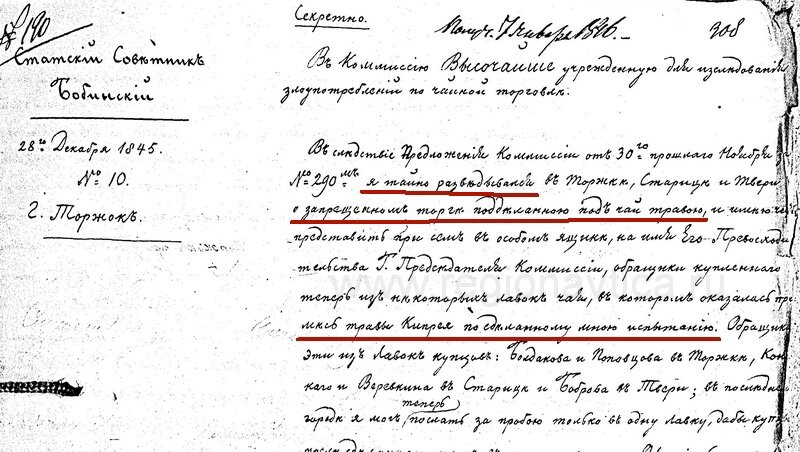 № 190
Статскій Совѣтникъ
Бобинскій
28го Декабря 1845.
№ 10.
г. Торжокъ.
Секретно.
Получ. 7 Января 1846.
308
Въ Коммиссію Высочайше учрежденную для изслѣдованія
злоупотребленій по чайной торговлѣ.
Въ слѣдствіе Предложенія Коммиссіи отъ 30го прошлаго Ноября з
№ 290мъ я тайно развѣдывалъ въ Торжкѣ, Старицѣ и Твери
о запрещенномъ торгѣ поддѣланною подъ чай травою, и имѣю че
представить при семъ въ особомъ ящикѣ, на имя Его Превосходи
тельства Г. Предсѣдателя Коммиссіи, обращики купленнаго
теперь изъ нѣкоторыхъ лавокъ чаю, въ которомъ оказалась при
мѣсь травы Кипрея по сдѣланному мною испытанію. Обращик
эти изъ лавокъ купцовъ: Болдакова и Поповцова въ Торжкѣ, Кон
каго и Веревкина въ Старицѣ и Боброва въ Твери; въ послѣдне
городѣ я могъ теперь послать за пробою только въ одну лавку, дабы купц
www.regionavtica.ru